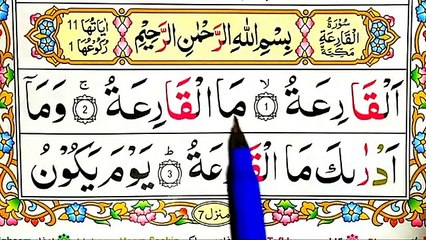 سُوْرَةُ الْقَارِعَةِ مَكِّيَّةٌ
بِسْمِ اللهِ الرَّحْمٰنِ الرَّحِيْمِ
اٰيَاتُهَا 11 رُكُوْعُهَا 1
اَلْقَارِعَةُ ۙ ﴿1﴾ مَا الْقَارِعَةُ ۚ ﴿2﴾ وَمَاۤ
اَدْرٰىكَ مَا الْقَارِعَةُ ؕ ﴿3﴾ يَوْمَ يَكُوْنُ
منزل 7